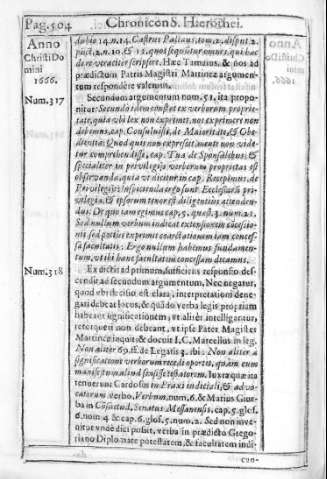 Pag. 504 Chronicon S. Hierothei.
Anno
Christi Do
mini
1666.
dubio 14. n. 14. Castrus Palaus, tom. 2. disput. 2.
punct. 2. n. 10. & 12. quos sequuntur omnes, qui bac
de re veraciter scripsere. Hæc Tamaius, & nos ad
prædictum Patris Magistri Martinez argumen-
tum respondere valemus.
Num. 317
Secundum argumentum num. 51. ita propo-
nitur: Secundò idem constat ex verborum proprie-
tate, quia ubi lex non exprimit, nos exprimere non
debemus, cap. Consuluisti, de Maioritate, & Obe-
dientia: Quod quis non expressit mente non vide-
tur comprehendisse, cap. Tua de Sponsalibus: &
specialiter in privilegijs verborum proprietas est
observanda, quia ut dicitur in cap. Recepimus, de
Privilegijs: Inspicienda ergo sunt Ecclesiarū pri-
vilegia, & ipsorum tenor est diligentius attenden-
dus. Et quia iam egimus cap. 5. quæst. 3. num. 21.
Sed nullum verbum indicat extensionem concessio-
nis sed potius exprimit coarctationem iam conces-
sæ facultatis: Ergo nullum habemus fundamen-
tum, ut ibi hanc facultatem concessam dicamus.
Num. 318
Ex dictis ad primum, sufficiens responsio des-
cendit ad secundum argumentum, Nec negatur,
quod ubi sensus est clarus, interpretationi dene-
gari debeat locus, & quādo verba legis propriam
habeant significationem, ut aliter intelligantur,
retorqueri non debeant, ut ipse Pater Magister
Martinez inquit & docuit I. C. Marcellus in leg.
Non aliter 69. ff. de Legatis 3. ibi: Non aliter à
significatione verborum recedi oportet, quàm cum
manifestum est aliud sensisse testatorem. Iuxta quæ ita
tenuerunt Cardoso in Praxi iudicū, & advo-
catorum verbo, Verbum, num. 6. & Marius Giur-
ba in Consuetud. Senatus Messanensis, cap. 5. glos.
6. num. 4 & cap. 6. glos. 5. num. 2. Sed non inve-
nitur unde dici possit, verba in prædicto Grego-
riano Diplomate potestatem, & facultatem indi-
can-